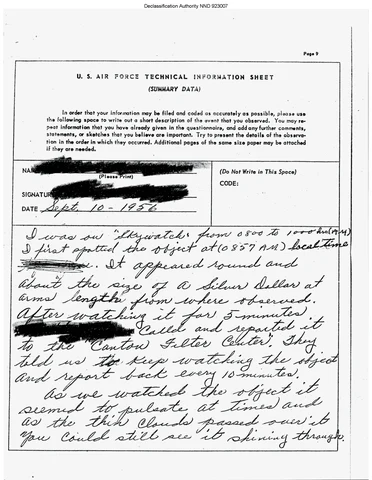 Declassification Authority NND 923007
Page 9
U. S. AIR FORCE TECHNICAL INFORMATION SHEET
(SUMMARY DATA)
In order that your information may be filed and coded as accurately as possible, please use
the following space to write out a short description of the event that you observed. You may re-
peat information that you have already given in the questionnaire, and add any further comments,
statements, or sketches that you believe are important. Try to present the details of the observa-
tion in the order in which they occurred. Additional pages of the same size paper may be attached
if they are needed.
NAM
(Please Print)
SIGNATUR
DATE Sept. 10 - 1956
(Do Not Write in This Space)
CODE:
I was on "Skywatch" from 0800 to 1000 hrs (AM)
I first spotted the object at (0857 AM) local time
. It appeared round and
about the size of a Silver Dollar at
arms length from where observed.
After watching it for 5 minutes
Called and reported it
to the "Canton Filter Center". They
told us to keep watching the object
and report back every 10 minutes.
As we watched the object it
seemed to pulsate at times and
as the thin clouds passed over it
you could still see it shining through.